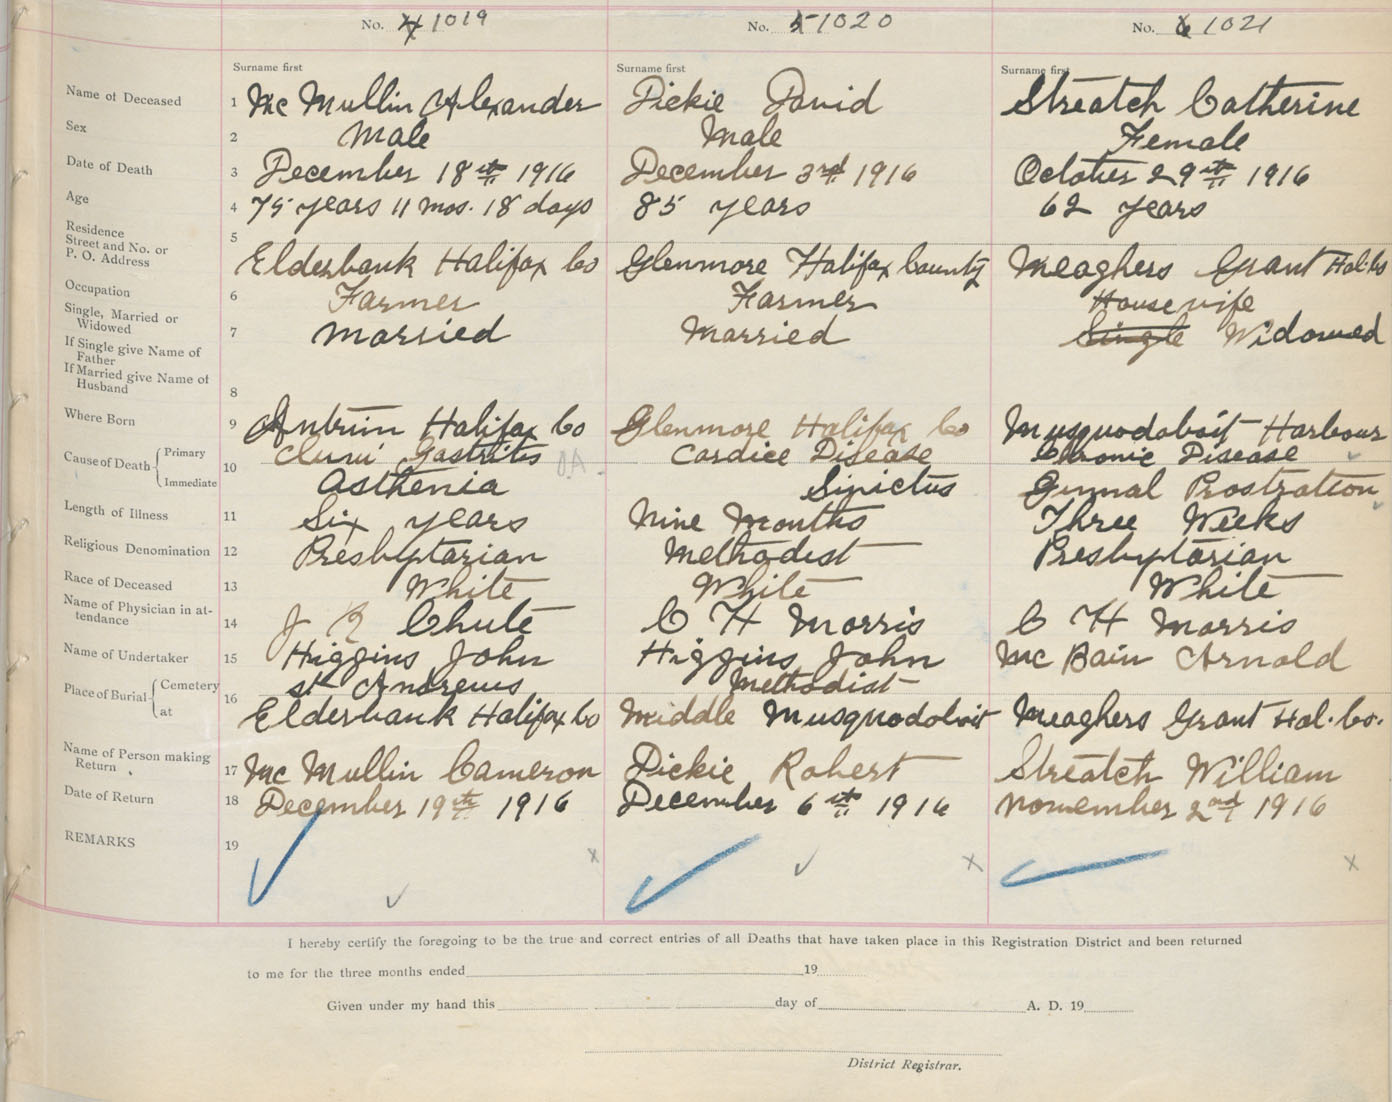 No. 4 1019
No. 5 1020
No. 6 1021
Surname first
Surname first
Surname first
Name of Deceased 1 Mc Mullin Alexander Dickie David Streatch Catherine
Sex 2 Male Male Female
Date of Death 3 December 18th 1916 December 3rd 1916 October 29th 1916
Age 4 75 years 11 mos. 18 days 85 years 62 years
Residence
Street and No. or
P. O. Address 5 Elderbank Halifax Co Glenmore Halifax County Meaghers Grant Hal. Co
Occupation 6 Farmer Farmer Housewife
Single, Married or
Widowed 7 Married Married Single Widowed
If Single give Name of
Father
If Married give Name of
Husband 8
Where Born 9 Antrim Halifax Co Glenmore Halifax Co Musquodoboit Harbour
Cause of Death Primary 10 Gastrites Cardice Disease Disease
Immediate Asthenia Prostration
Length of Illness 11 Six years Nine Months Three Weeks
Religious Denomination 12 Presbytarian Methodist Presbytarian
Race of Deceased 13 White White White
Name of Physician in at-
tendance 14 J R Chute C H Morris C H Morris
Name of Undertaker 15 Higgins John Higgins John Mc Bain Arnold
Place of Burial Cemetery 16 St Andrews Methodist
at Elderbank Halifax Co Middle Musquodoboit Meaghers Grant Hal. Co.
Name of Person making
Return 17 Mc Mullin Cameron Dickie Robert Streatch William
Date of Return 18 December 19th 1916 December 6th 1916 November 2nd 1916
REMARKS 19
I hereby certify the foregoing to be the true and correct entries of all Deaths that have taken place in this Registration District and been returned
to me for the three months ended 19
Given under my hand this day of A. D. 19
District Registrar.